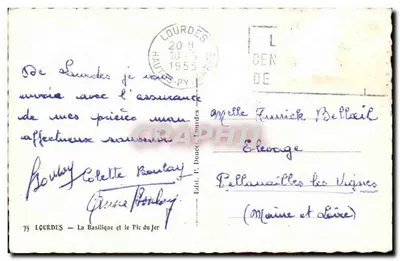 LOURDES
20 H
10
1955
HAUTES-PY
L
CEN
DE
De Lourdes je vous
envoie avec l'assurance
de mes prières mon
affectueux souvenir
Colette Boulay
Anne Boulay
Boulay
Elevage
Pellouailles les Vignes
(Maine et Loire)
Edit. P. Doucet Lourdes
75 LOURDES - La Basilique et le Pic du Jer